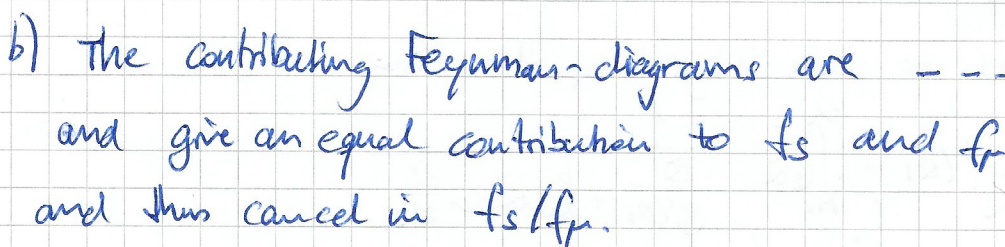 b) The contributing Feynman-diagrams are ---
and give an equal contribution to fs and fμ
and thus cancel in fs/fμ.